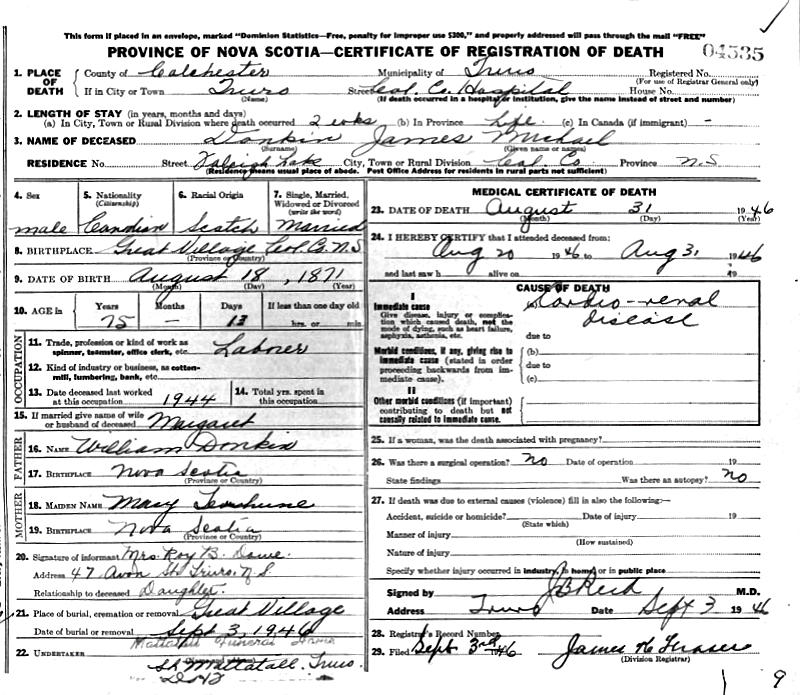 This form if placed in an envelope, marked "Dominion Statistics—Free, penalty for improper use $300," and properly addressed will pass through the mail "FREE"
PROVINCE OF NOVA SCOTIA—CERTIFICATE OF REGISTRATION OF DEATH 04535
1. PLACE OF DEATH
County of Colchester Municipality of Truro Registered No.
(For use of Registrar General only)
If in City or Town Truro Street Col. Co. Hospital House No.
(Name) (If death occurred in a hospital or institution, give the name instead of street and number)
2. LENGTH OF STAY (in years, months and days)
(a) In City, Town or Rural Division where death occurred 2 wks (b) In Province Life (c) In Canada (if immigrant) -
3. NAME OF DECEASED Donkin James Michael
(Surname) (Given name or names)
RESIDENCE No. Street Folleigh Lake City, Town or Rural Division Col. Co. Province N.S
(Residence means usual place of abode. Post Office Address for residents in rural parts not sufficient)
4. Sex
male
5. Nationality
(Citizenship)
Canadian
6. Racial Origin
Scotch
7. Single, Married, Widowed or Divorced
(write the word)
Married
8. BIRTHPLACE Great Village Col. Co. N.S
(Province or Country)
9. DATE OF BIRTH August 18, 1871
(Month) (Day) (Year)
10. AGE in Years Months Days If less than one day old
75 — 13 hrs. or min.
OCCUPATION
11. Trade, profession or kind of work as spinner, teamster, office clerk, etc. Laborer
12. Kind of industry or business, as cotton-mill, lumbering, bank, etc.
13. Date deceased last worked at this occupation 1944
14. Total yrs. spent in this occupation
15. If married give name of wife or husband of deceased Margaret
FATHER
16. NAME William Donkin
17. BIRTHPLACE Nova Scotia
(Province or Country)
MOTHER
18. MAIDEN NAME Mary
19. BIRTHPLACE Nova Scotia
(Province or Country)
20. Signature of informant Mrs. Roy B.
Address 47 Avon St. Truro. N.S.
Relationship to deceased Daughter
21. Place of burial, cremation or removal Great Village
Date of burial or removal Sept 3, 1946
22. UNDERTAKER Mattatall Funeral Home
Mattatall. Truro.
MEDICAL CERTIFICATE OF DEATH
23. DATE OF DEATH August 31 1946
(Month) (Day) (Year)
24. I HEREBY CERTIFY that I attended deceased from:
Aug 20 1946 to Aug 31 1946
and last saw h alive on 19
CAUSE OF DEATH
I
Immediate cause
Give disease, injury or complication which caused death, not the mode of dying, such as heart failure, asphyxia, asthenia, etc.
Cardio-renal
disease
due to
Morbid conditions, if any, giving rise to immediate cause (stated in order proceeding backwards from immediate cause).
(b)
due to
(c)
II
Other morbid conditions (if important) contributing to death but not causally related to immediate cause.
25. If a woman, was the death associated with pregnancy?
26. Was there a surgical operation? No Date of operation 19
State findings Was there an autopsy? No
27. If death was due to external causes (violence) fill in also the following:—
Accident, suicide or homicide? Date of injury 19
(State which)
Manner of injury
(How sustained)
Nature of injury
Specify whether injury occurred in industry, in home, or in public place
Signed by J B Reid M.D.
Address Truro Date Sept 3 1946
28. Registrar's Record Number
29. Filed Sept 3rd 1946 James H Fraser
(Division Registrar)
9